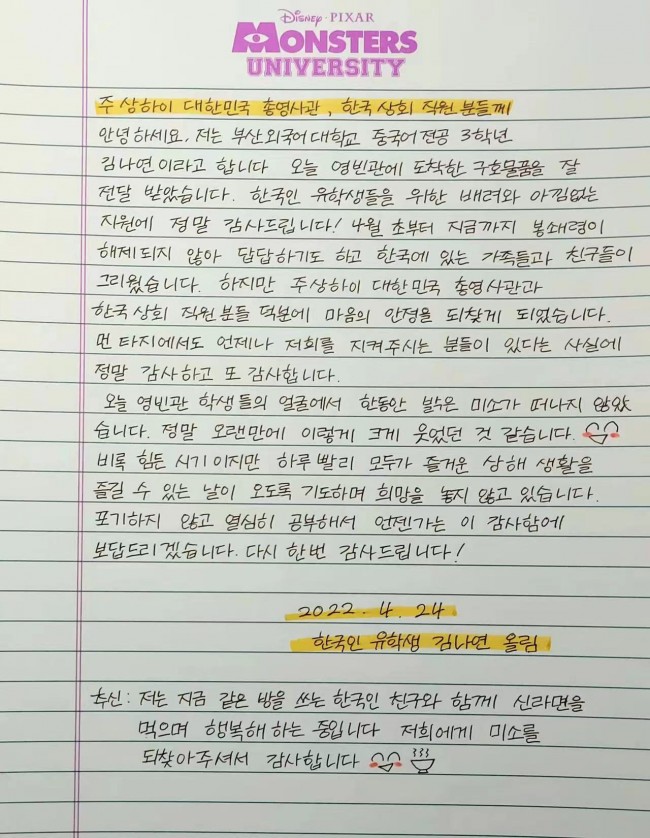 DISNEY · PIXAR
MONSTERS
UNIVERSITY
주 상하이 대한민국 총영사관, 한국 상회 직원 분들께
안녕하세요. 저는 부산외국어대학교 중국어전공 3학년
김나연이라고 합니다 오늘 영빈관에 도착한 구호물품을 잘
전달 받았습니다. 한국인 유학생들을 위한 배려와 아낌없는
지원에 정말 감사드립니다! 4월 초부터 지금까지 봉쇄령이
해제되지 않아 답답하기도 하고 한국에 있는 가족들과 친구들이
그리웠습니다. 하지만 주상하이 대한민국 총영사관과
한국 상회 직원 분들 덕분에 마음의 안정을 되찾게 되었습니다.
먼 타지에서도 언제나 저희를 지켜주시는 분들이 있다는 사실에
정말 감사하고 또 감사합니다.
오늘 영빈관 학생들의 얼굴에서 한동안 밝은 미소가 떠나지 않았
습니다. 정말 오랜만에 이렇게 크게 웃었던 것 같습니다.
비록 힘든 시기이지만 하루 빨리 모두가 즐거운 상해 생활을
즐길 수 있는 날이 오도록 기도하며 희망을 놓지 않고 있습니다.
포기하지 않고 열심히 공부해서 언젠가는 이 감사함에
보답드리겠습니다. 다시 한번 감사드립니다!
2022. 4. 24
한국인 유학생 김나연 올림
추신: 저는 지금 같은 방을 쓰는 한국인 친구와 함께 신라면을
먹으며 행복해 하는 중입니다 저희에게 미소를
되찾아주셔서 감사합니다